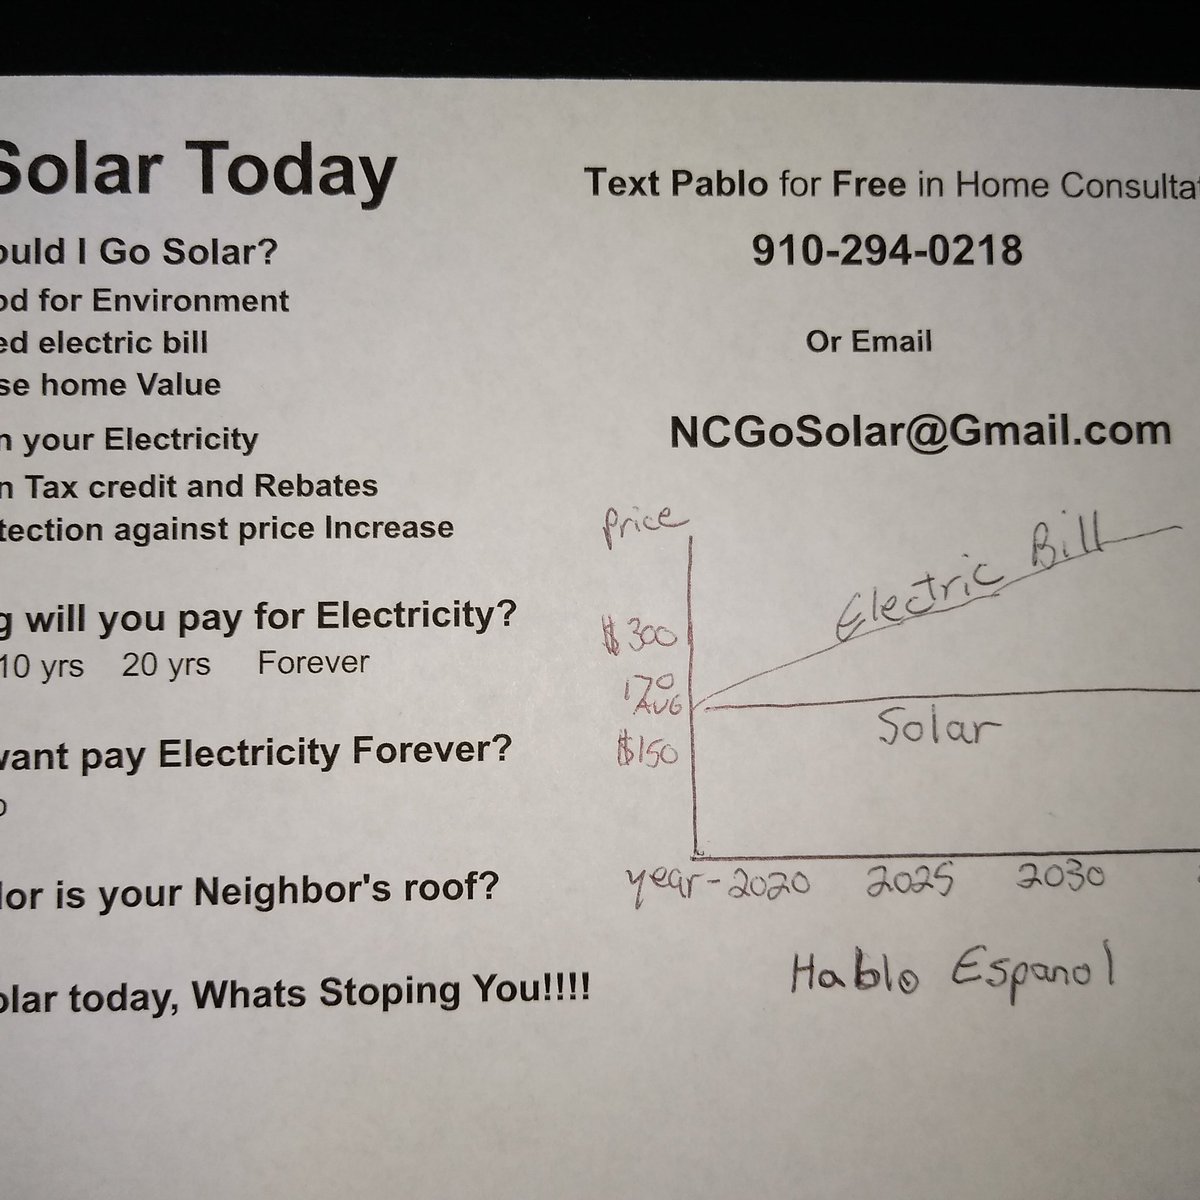 Solar Today
ould I Go Solar?
od for Environment
ed electric bill
se home Value
n your Electricity
n Tax credit and Rebates
tection against price Increase
g will you pay for Electricity?
10 yrs 20 yrs Forever
want pay Electricity Forever?
o
lor is your Neighbor's roof?
olar today, Whats Stoping You!!!!
Text Pablo for Free in Home Consultat
910-294-0218
Or Email
NCGoSolar@Gmail.com
Price
Electric Bill
$300
170
AVG
Solar
$150
year-2020 2025 2030
Hablo Espanol